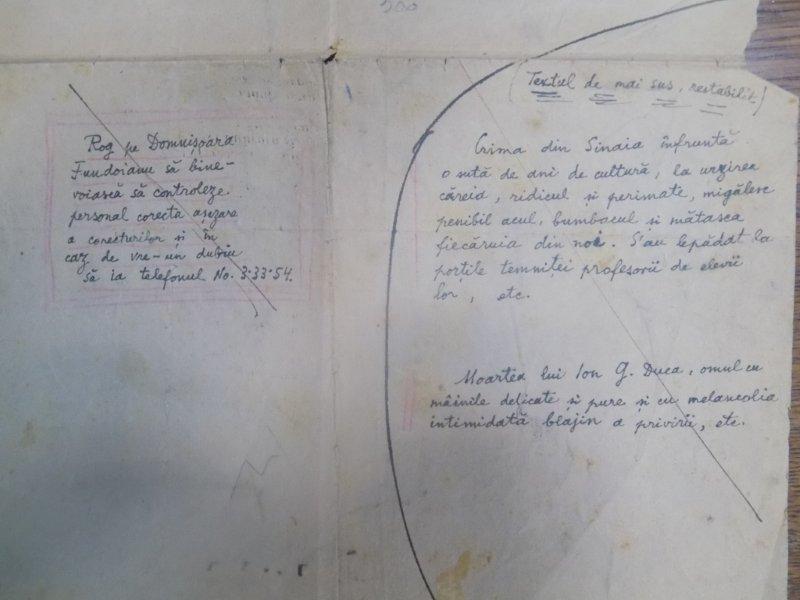 300
Rog pe Domnișoara
Fundoianu să bine-
voiască să controleze
personal corecta așezare
a corecturilor și în
caz de vre-un dubiu
să ia telefonul No. 3.33.54.
(Textul de mai sus, restabilit)
Crima din Sinaia înfruntă
o sută de ani de cultură, la urzirea
căreia, ridicul și perimate, migălesc
penibil acul, bumbacul și mătasea
fiecăruia din noi. S'au lepădat la
porțile temniței profesorii de elevii
lor, etc.
Moartea lui Ion G. Duca, omul cu
mâinile delicate și pure și cu melancolia
intimidată blajin a privirii, etc.